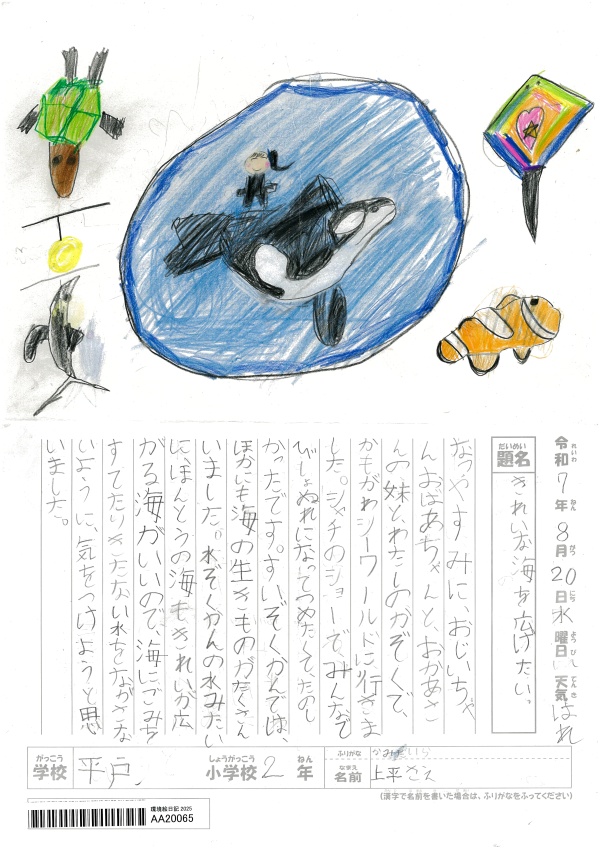 令和7年8月20日水曜日天気はれ
れいわ ねん がつ にち ようび てんき
だいめい
題名 きれいな海を広げたい。
なつやすみに、おじいちゃ
んおばあちゃんと、おかあさ
んの妹と、わたしのかぞくで、
かもがわシーワールドに行きま
した。シャチのショーで、みんなで
びしょぬれになってつめたくて、たのし
かったです。すいぞくかんでは、
ほかにも海の生きものがたくさん
いました。水ぞくかんの水みたい
に、ほんとうの海もきれいが広
がる海がいいので、海にごみを
すてたりきたない水をながさな
いように、気をつけようと思
いました。
がっこう しょうがっこう ねん ふりがな
学校 平戸 小学校 2年 なまえ 名前 上平
(漢字で名前を書いた場合は、ふりがなをふってください)
環境絵日記 2025
AA20065